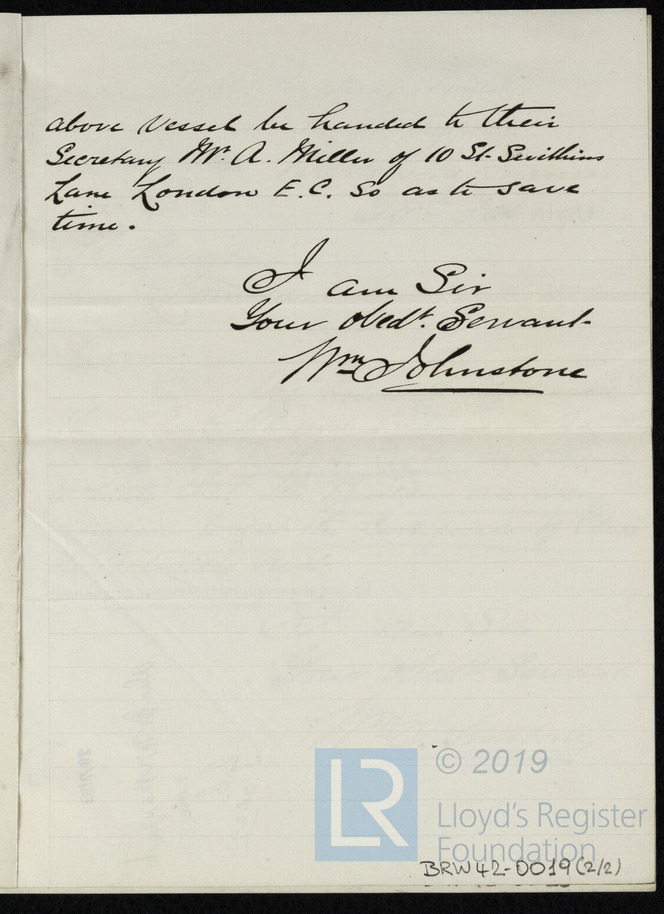 above vessel be handed to their
Secretary Mr. A. Miller of 10 St. Swithins
Lane London E.C. So as to save
time.
I am Sir
Your obedt. Servant
Wm Johnstone
LR
© 2019
Lloyd's Register
Foundation
BRW42-0019(2/2)